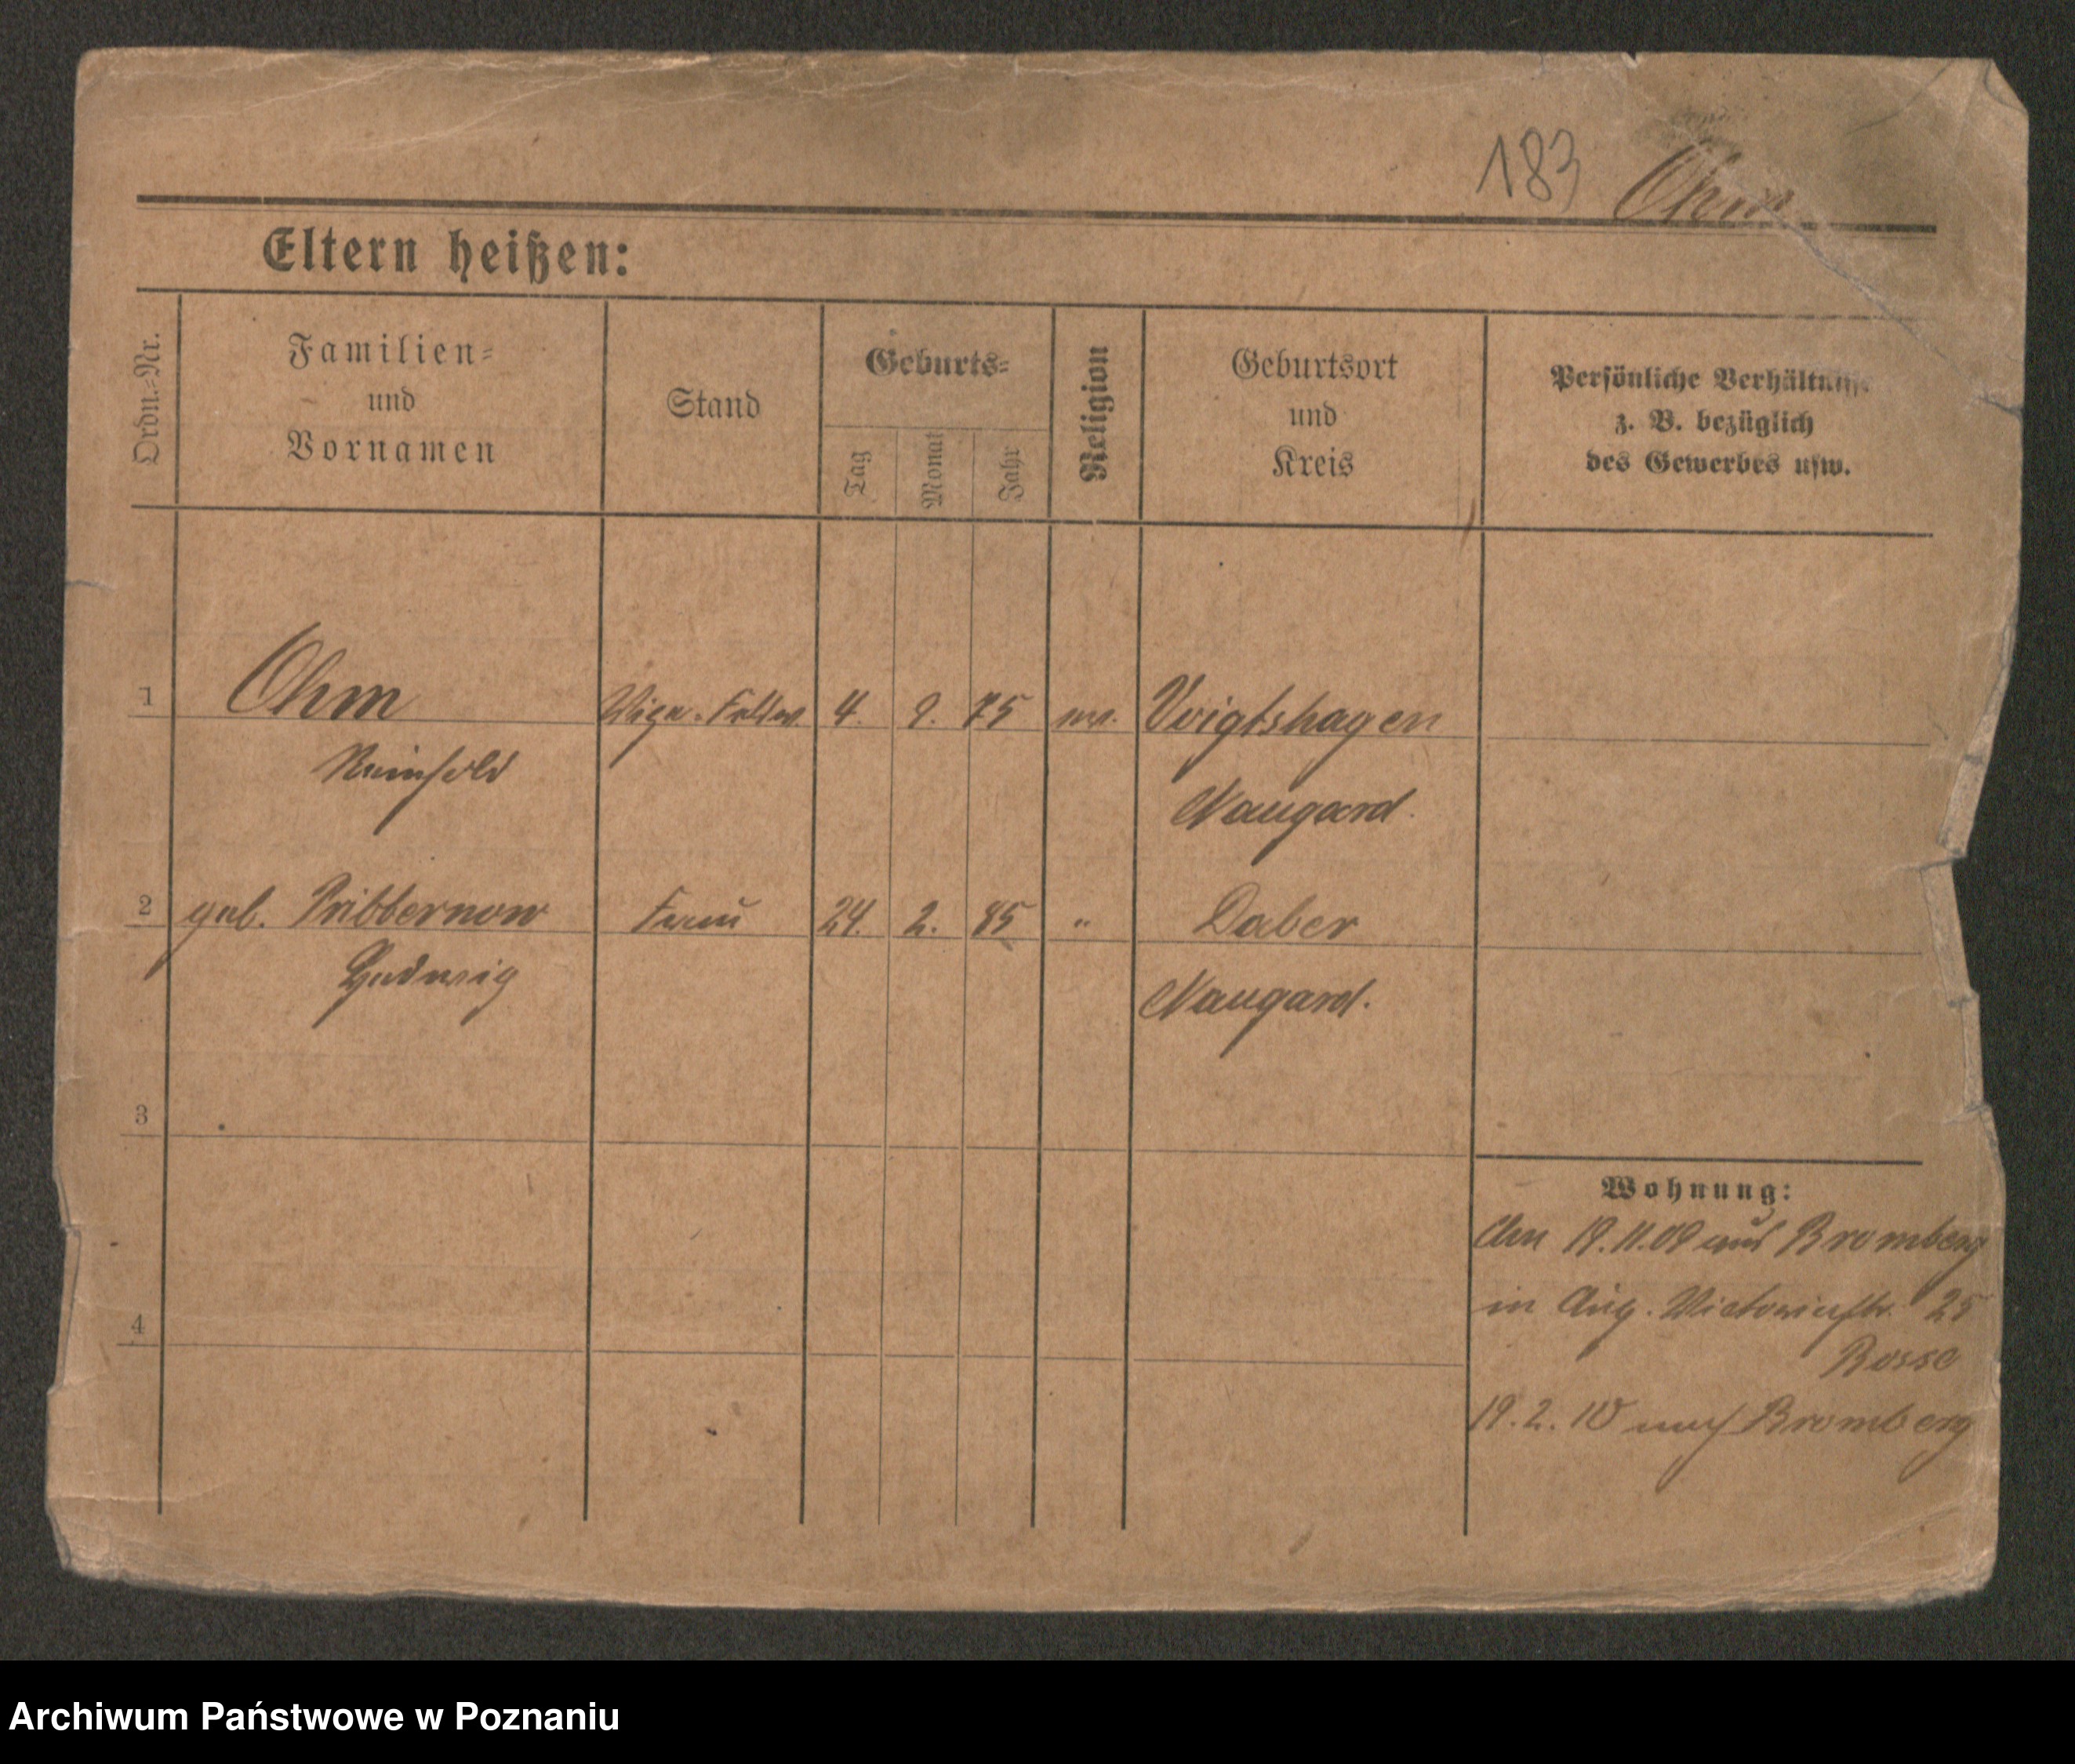 183 Ohm
Eltern heißen:
Ordn.-Nr.
Familien-
und
Vornamen
Stand
Geburts-
Tag
Monat
Jahr
Religion
Geburtsort
und
Kreis
Persönliche Verhältnisse
z. B. bezüglich
des Gewerbes usw.
1 Ohm Vize-Feldw. 4. 9. 75 ev. Voigtshagen
Reinhold Naugard.
2 geb. Pribbernow Frau 24. 2. 85 " Daber
Hedwig Naugard.
3
4
Wohnung:
Am 19.11.09 aus Bromberg
in Aug. Victoriastr. 25
Bosse
19.2.10 nach Bromberg
Archiwum Państwowe w Poznaniu